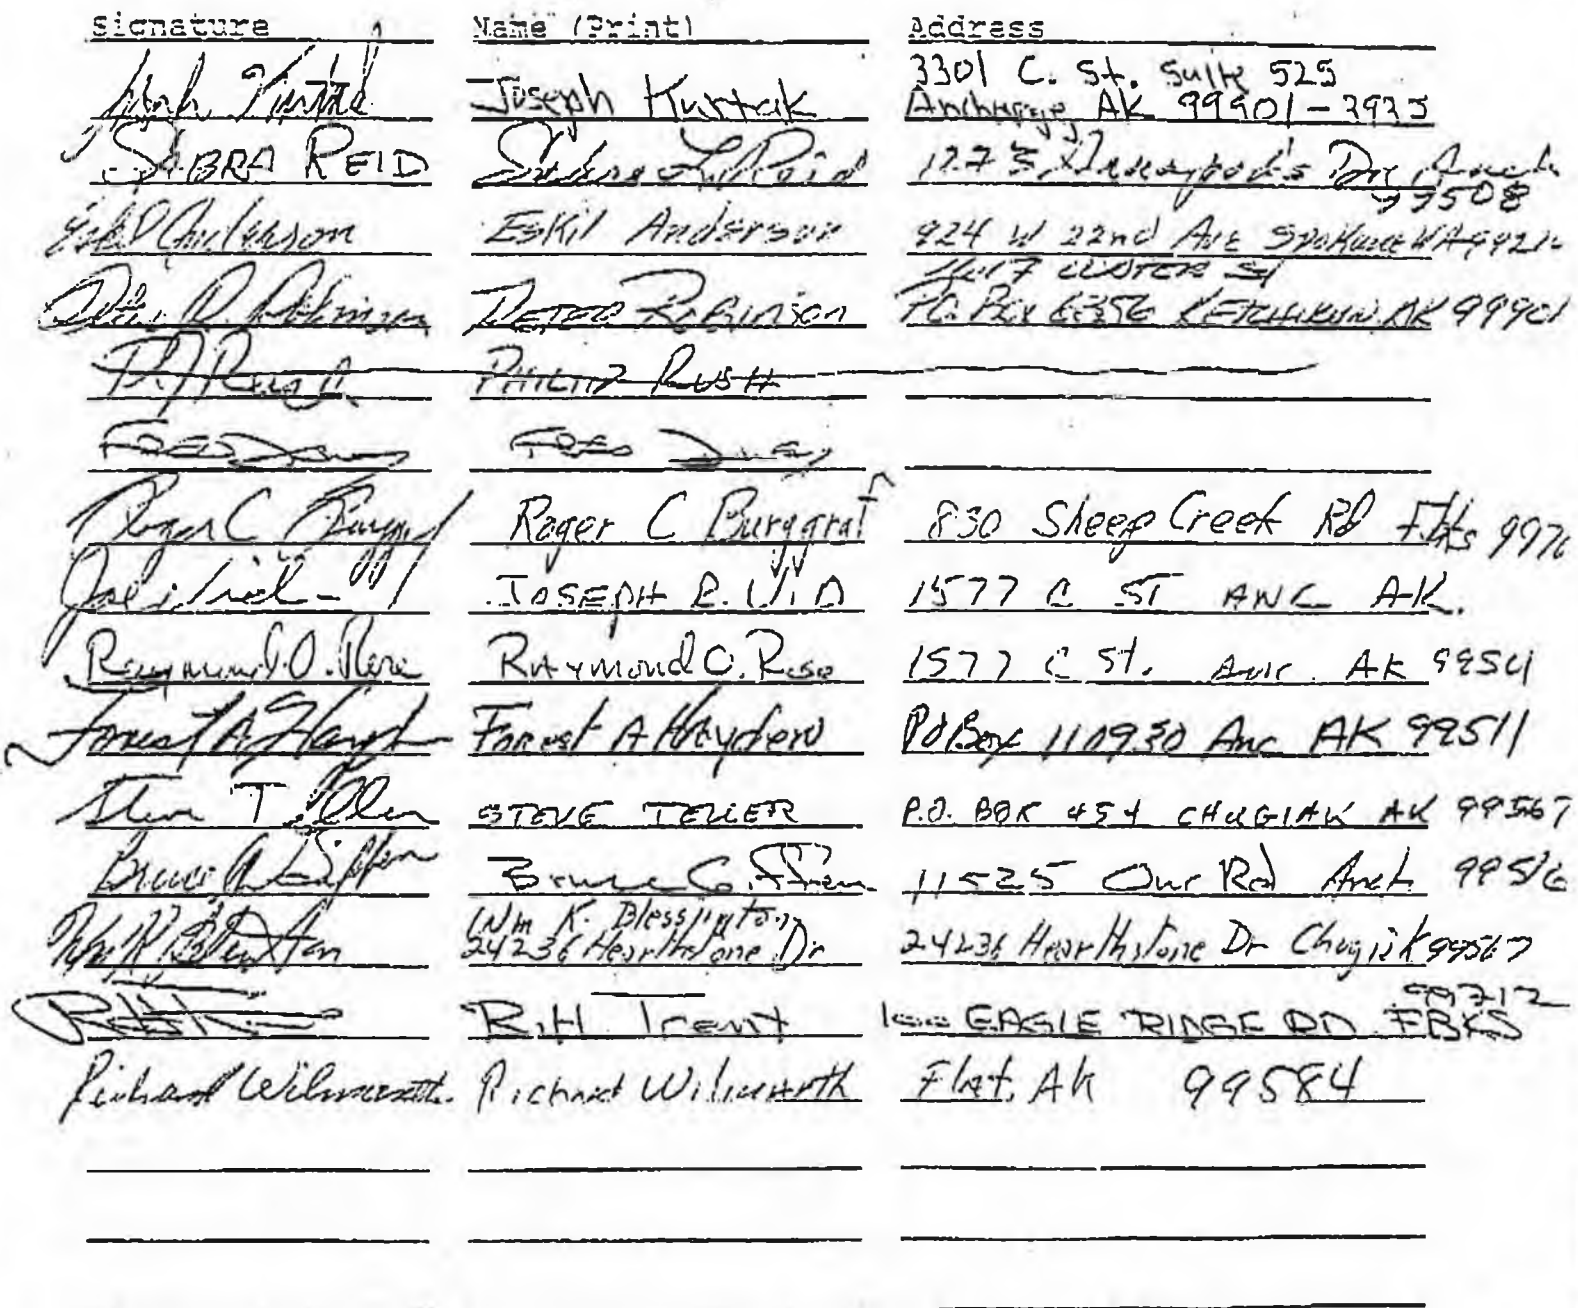 Signature Name (Print) Address
3301 C. St. Suite 525
Joseph Kurtak Anchorage AK 99901-2925
SABRA REID 1273 Dr, Anch
99508
Eskil Anderson Eskil Anderson 924 W 22nd Ave Spokane WA
WATER St
Peter R. Robinson PETER ROBINSON P.O. Box 6356 KETCHIKAN, AK 99901
PHILIP RUSH
FRED FRED
Roger C Burggraf Roger C Burggraf 830 Sheep Creek Rd Fbks
JOSEPH 1577 C ST ANC AK.
Raymond O. Rose Raymond O. Rose 1577 C St. Anc. AK
Forrest A Hayden Forrest A Hayden PO Box 110930 Anc AK 99511
Steve T STEVE TELLER P.O. BOX 454 CHUGIAK AK 99567
Bruce Bruce 11525 Our Rd Anch. 99516
Wm K. Blessington
24236 Hearthstone Dr 24236 Hearthstone Dr Chugiak 99567
99712
R.H. Trent EAGLE RIDGE RD FBKS
Richard Wilmarth Richard Wilmarth Flat, AK 99584